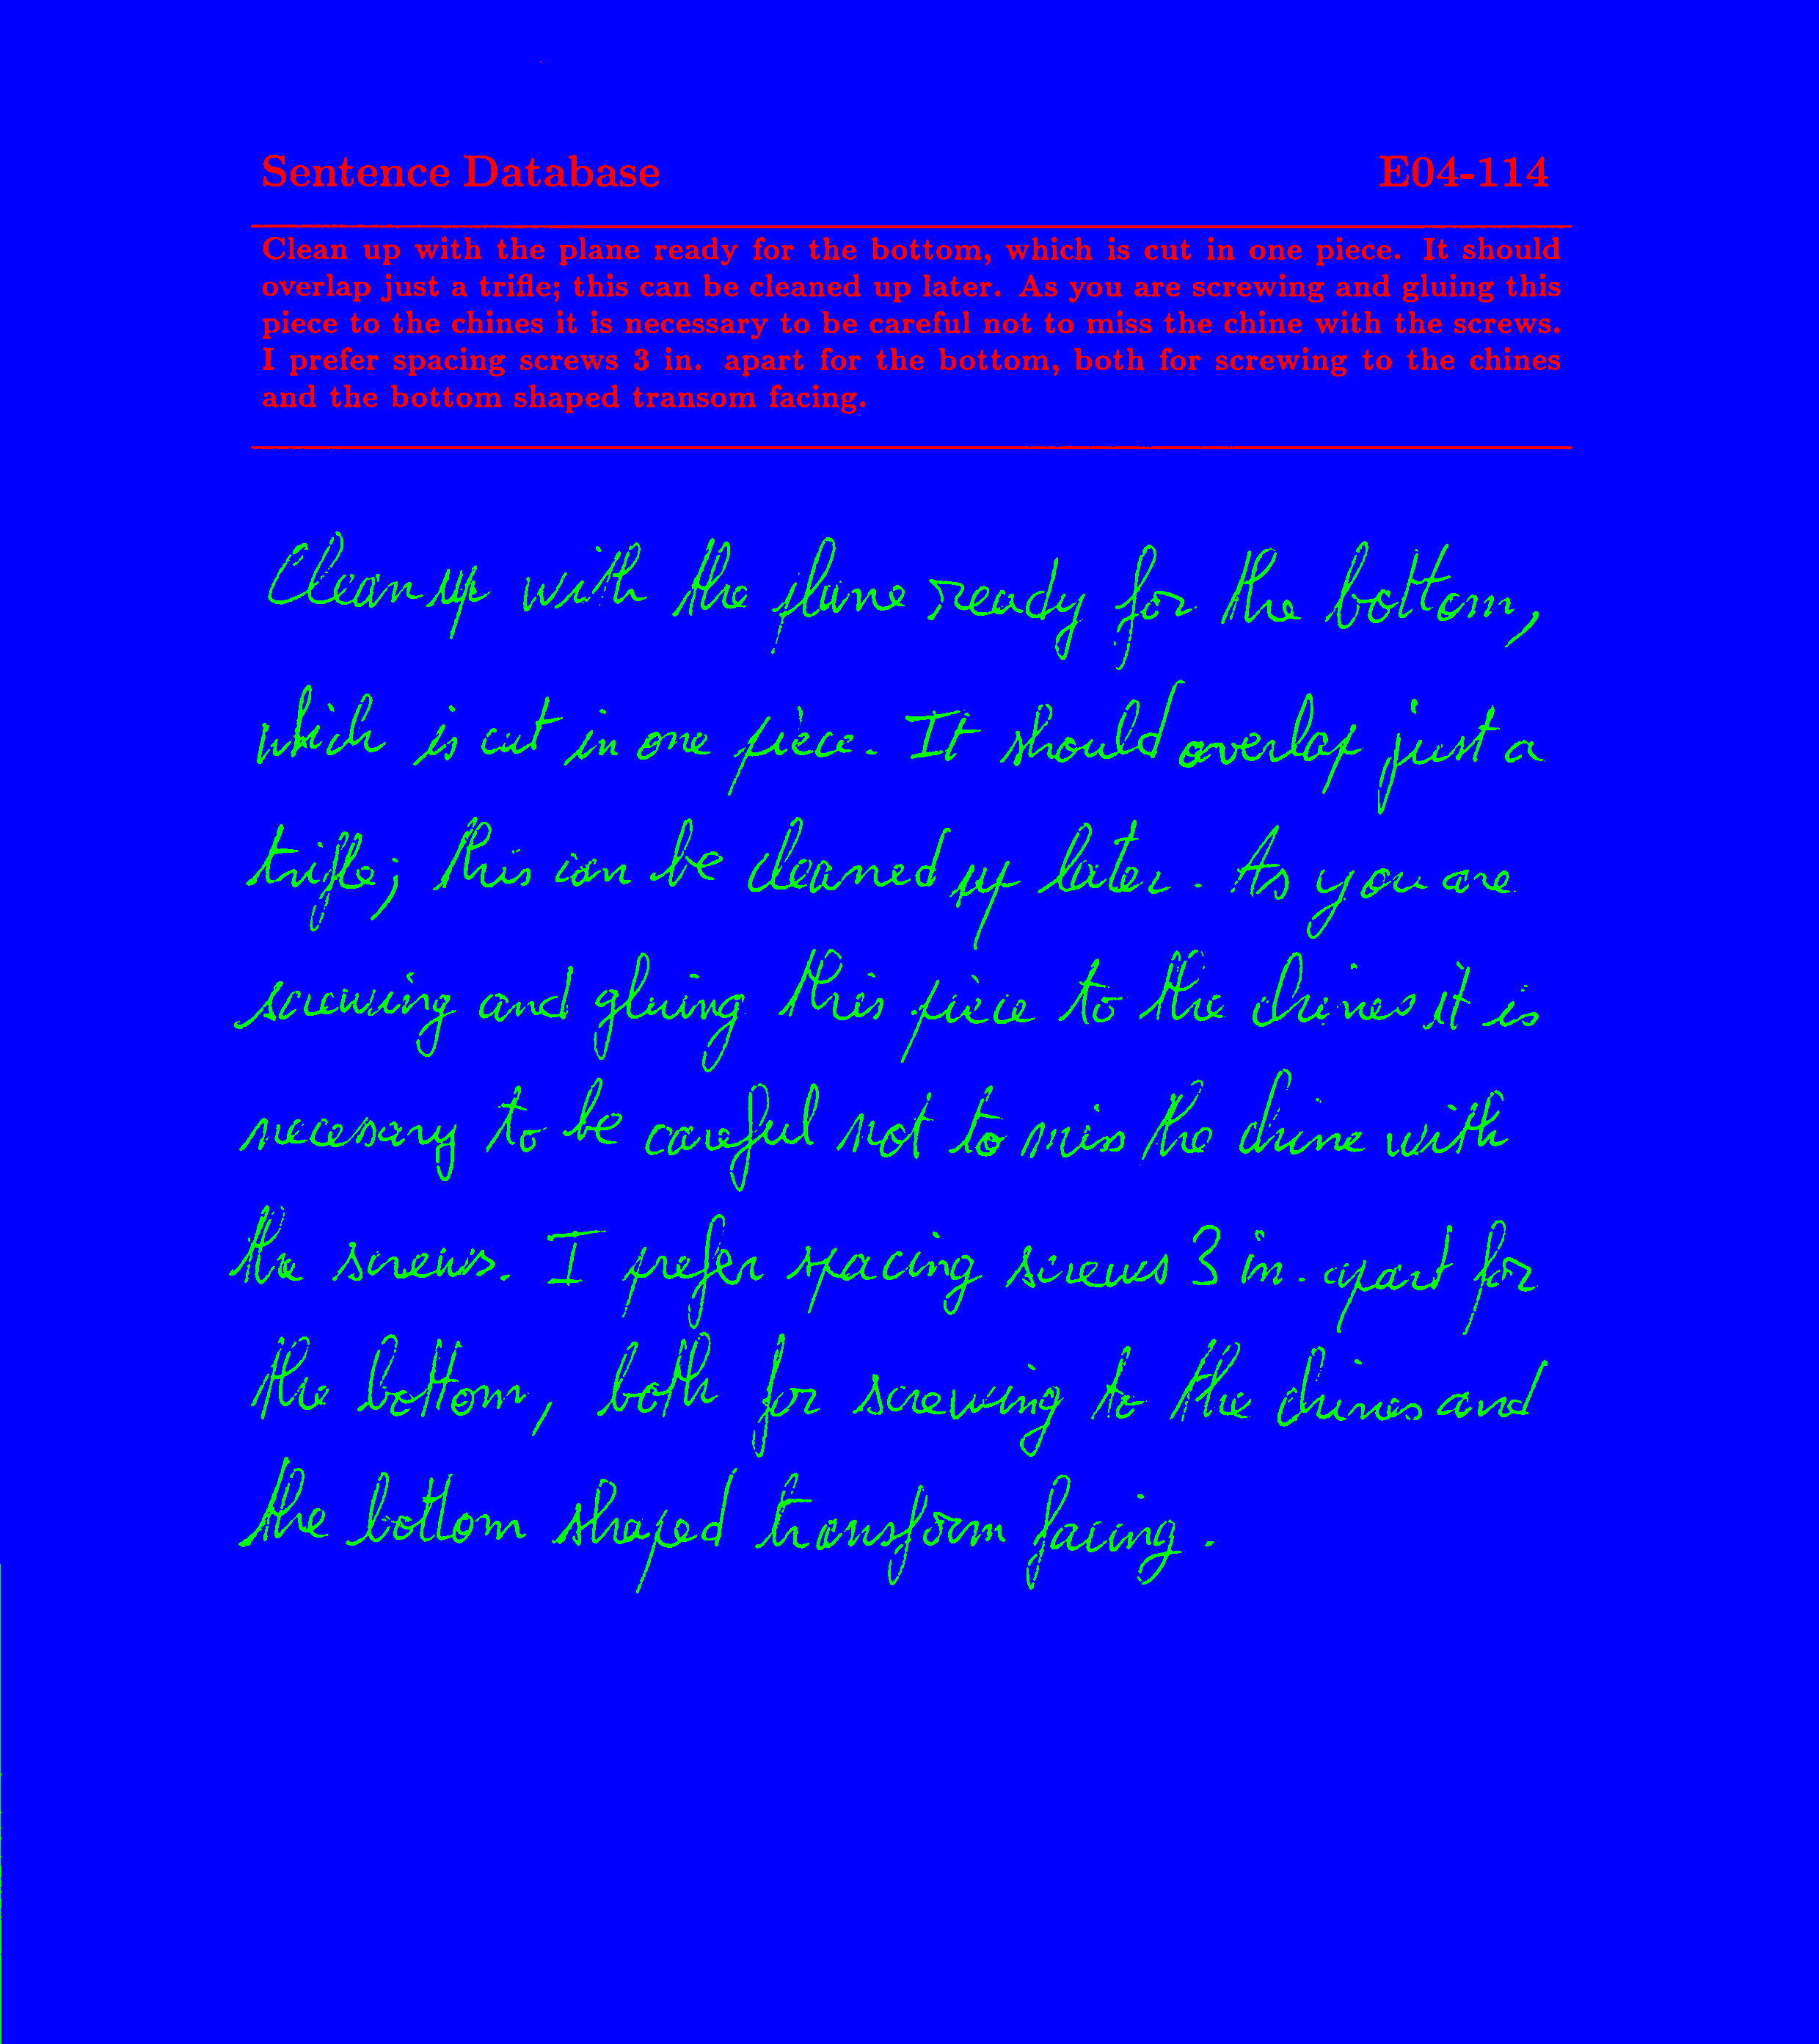 Sentence Database E04-114
Clean up with the plane ready for the bottom, which is cut in one piece. It should
overlap just a trifle; this can be cleaned up later. As you are screwing and gluing this
piece to the chines it is necessary to be careful not to miss the chine with the screws.
I prefer spacing screws 3 in. apart for the bottom, both for screwing to the chines
and the bottom shaped transom facing.
Clean up with the plane ready for the bottom,
which is cut in one piece. It should overlap just a
trifle; this can be cleaned up later. As you are
screwing and gluing this piece to the chines it is
necesary to be careful not to miss the chine with
the screws. I prefer spacing screws 3 in. apart for
the bottom, both for screwing to the chines and
the bottom shaped transform facing.